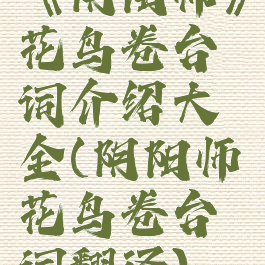 《阴阳师》
花鸟卷台
词介绍大
全(阴阳师
花鸟卷台
词翻译)